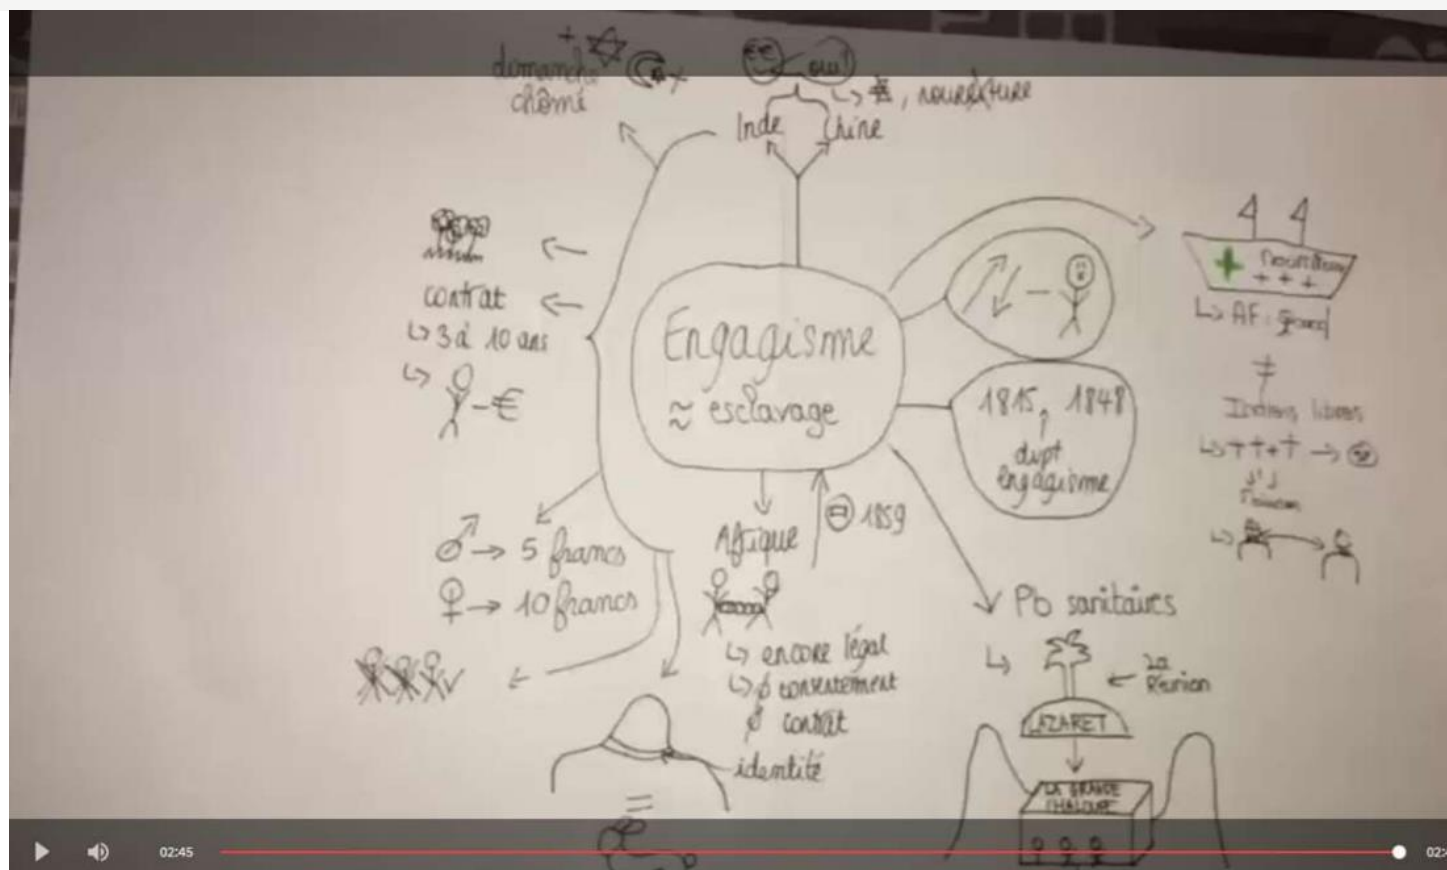 dimanche
chômé
oui!
nourriture
Inde Chine
contrat
↳ 3 à 10 ans
- €
Engagisme
≈ esclavage
1815, 1848
dvpt
engagisme
↳ AF :
≠
Indiens libres
♂ → 5 francs
♀ → 10 francs
Afrique
1859
↳ encore légal
↳ ∅ consentement
∅ contrat
identité
Pb sanitaires
La
Réunion
LAZARET
LA GRANDE
CHALOUPE
02:45